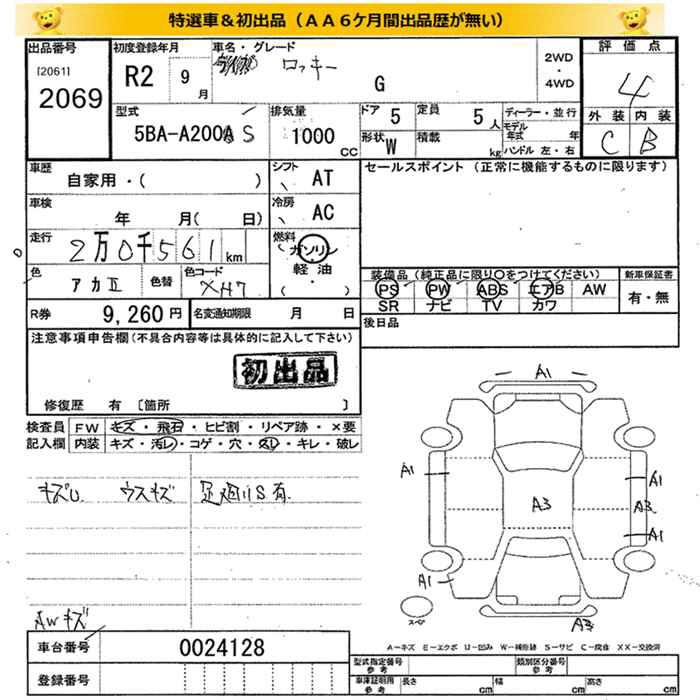 特選車＆初出品（ＡＡ６ケ月間出品歴が無い）
出品番号
[2061]
2069
初度登録年月
R2 9月
車名・グレード
ロッキー
G
2WD
・
4WD
評価点
4
外装 内装
C B
型式
5BA-A200A S
排気量
1000 CC
ドア 5
形状 W
定員 5人
積載 kg
ディーラー・並行
モデル年式 年
ハンドル 左・右
車歴
自家用・( )
シフト AT
セールスポイント（正常に機能するものに限ります）
車検
年 月( 日)
冷房 AC
走行
2万0千561km
燃料
ガソリン
軽油
( ・ )
色
アカII
色替
色コード
装備品（純正品に限り○をつけてください）
PS PW ABS エアB AW
SR ナビ TV カワ
新車保証書
有・無
R券 9,260円
名変通知期限 月 日
後日品
注意事項申告欄(不具合内容等は具体的に記入して下さい)
初出品
修復歴 有〔箇所 〕
検査員記入欄
FW キズ・飛石・ヒビ割・リペア跡・×要
内装 キズ・汚レ・コゲ・穴・スレ・キレ・破レ
キズU ウスキズ 足廻りS有
AWキズ
A1
A1
A1
A3
A3
A1
A1
A3
スペア
A－キズ E－エクボ U－凹み W－補修跡 S－サビ C－腐食 XX－交換済
車台番号 0024128
登録番号
型式指定番号 参考
類別区分番号 参考
車庫証明用 参考 長さ cm 幅 cm 高さ cm